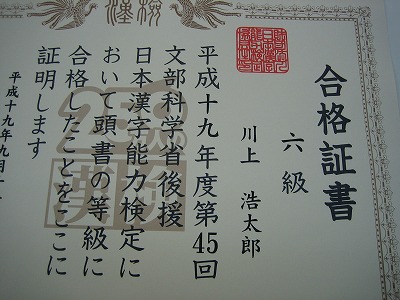 合格証書
六級
川上 浩太郎
平成十九年度第45回
文部科学省後援
日本漢字能力検定に
おいて頭書の等級に
合格したことをここに
証明します
平成十九年九月十
漢検